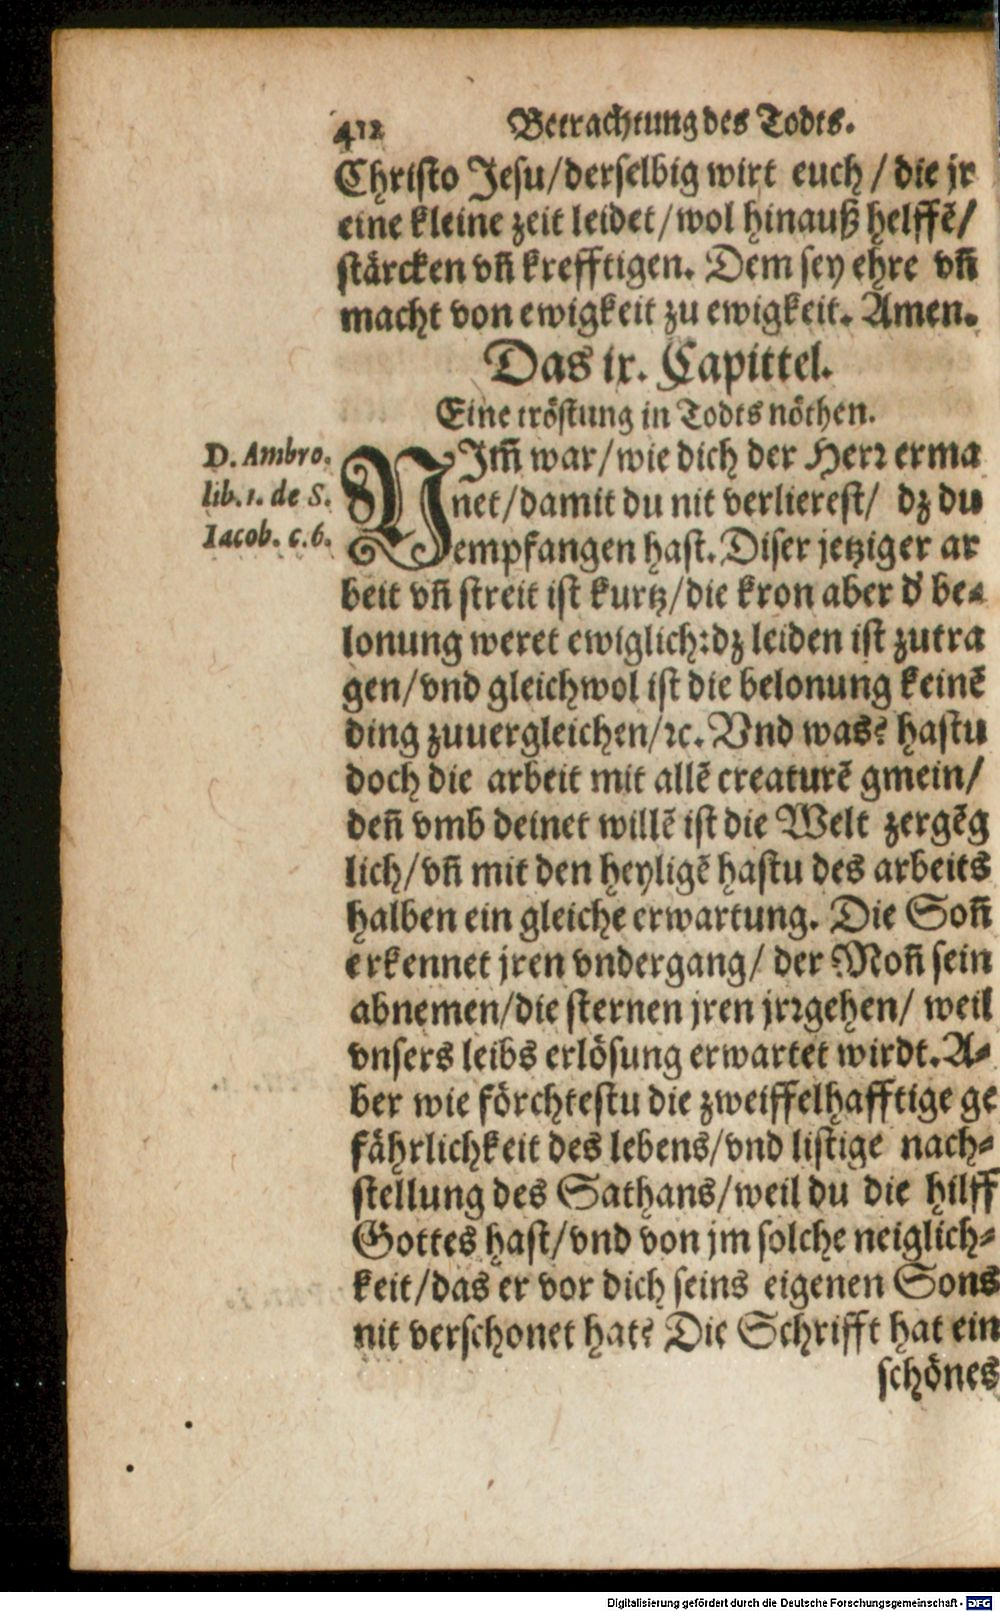 412 Betrachtung des Todts.
Christo Jesu/derselbig wirt euch/die jr
eine kleine zeit leidet/wol hinauß helffẽ/
stärcken vñ krefftigen. Dem sey ehre vñ
macht von ewigkeit zu ewigkeit. Amen.
Das ix. Capittel.
Eine tröstung in Todts nöthen.
D. Ambro.
lib. 1. de S.
Iacob. c. 6.
NIm̃ war/wie dich der Herr erma
net/damit du nit verlierest/ dz du
empfangen hast. Diser jetziger ar
beit vñ streit ist kurtz/die kron aber d' be-
lonung weret ewiglich:dz leiden ist zutra
gen/vnd gleichwol ist die belonung keinẽ
ding zuuergleichen/ꝛc. Vnd was? hastu
doch die arbeit mit allẽ creaturẽ gmein/
deñ vmb deinet willẽ ist die Welt zergẽg
lich/vñ mit den heyligẽ hastu des arbeits
halben ein gleiche erwartung. Die Soñ
erkennet jren vndergang/ der Moñ sein
abnemen/die sternen jren jrrgehen/ weil
vnsers leibs erlösung erwartet wirdt. A-
ber wie förchtestu die zweiffelhafftige ge
fährlichkeit des lebens/vnd listige nach-
stellung des Sathans/weil du die hilff
Gottes hast/vnd von jm solche neiglich-
keit/das er vor dich seins eigenen Sons
nit verschonet hat? Die Schrifft hat ein
schönes
Digitalisierung gefördert durch die Deutsche Forschungsgemeinschaft - DFG